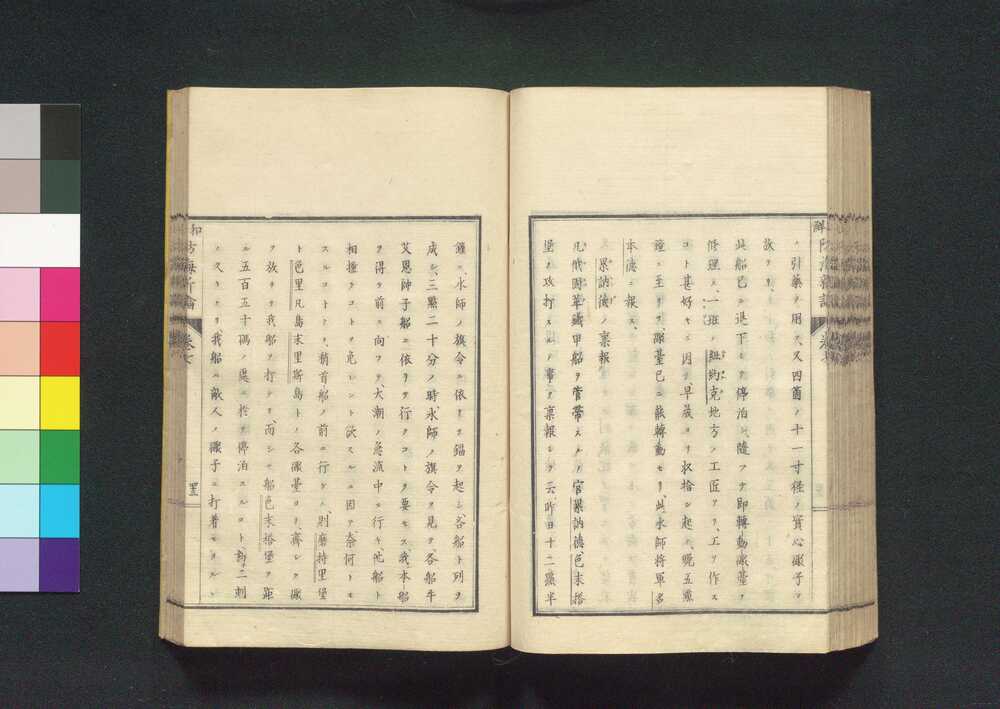 ヽ引藥ヲ用ス、又四箇ノ十一寸径ノ實心礮子ヲ
放テリ、
此船已ニ退下シテ停泊ス、隨フテ即轉動礮臺ヲ
修理ス、一班ノ紐約克地方ノ工匠アリ、工ヲ作ス
コト甚好シ、モニ因テ早晨ヨリ收拾シ起シ、晩五點
鐘ニ至リテ、礮臺已ニ能轉動セリ、此水師將軍名
本德ニ報ス、
累訥德ノ稟報
凡俄囬革鐵甲船ヲ管帶スルノ官累訥德、色末塔
堡ノ攻打スルノ事ヲ稟報シテ云、昨日十二點半
鐘ニ、水師ノ旗令ニ依リテ錨ヲ起シ、各船ト列ヲ
成シ、三點二十分ノ時、水師ノ旗令ヲ見テ、各船牛
艾恩帥子船ニ依リテ行クコトヲ要セス、我本船
ヲ得テ前ニ向フテ、大潮ノ急流中ニ行キ、他船ト
相撞クコトヲ免レント欲スルニ因テ、奈何トモ
スルコトナク、稍首船ノ前ニ行ケハ、則麻持里堡
ト色里凡島末里斯島トノ各礮臺ヨリ、齊シク礮
ヲ放テ、我船ヲ打テリ、而シテ船色末塔堡ヲ距
ル五百五十碼ノ處ニ於テ停泊スルコト、熟二刻
ノ久キナリ、我船ニ敵人ノ礮子ニ打着セラルヽ
卷七